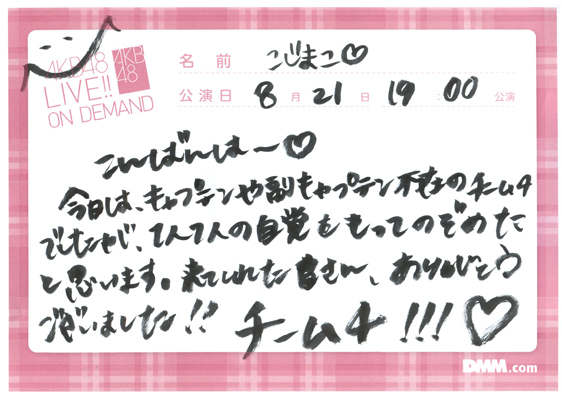 AKB48
LIVE!!
ON DEMAND
AKB
48
名前 こじまこ♡
公演日 8月21日 19:00公演
こんばんは～♡
今日は、キャプテンや副キャプテン不在のチーム4
でしたが、1人1人の自覚をもってのぞめた
と思います。来てくれた皆さん、ありがとう
ございました!!
チーム4!!!♡
DMM.com